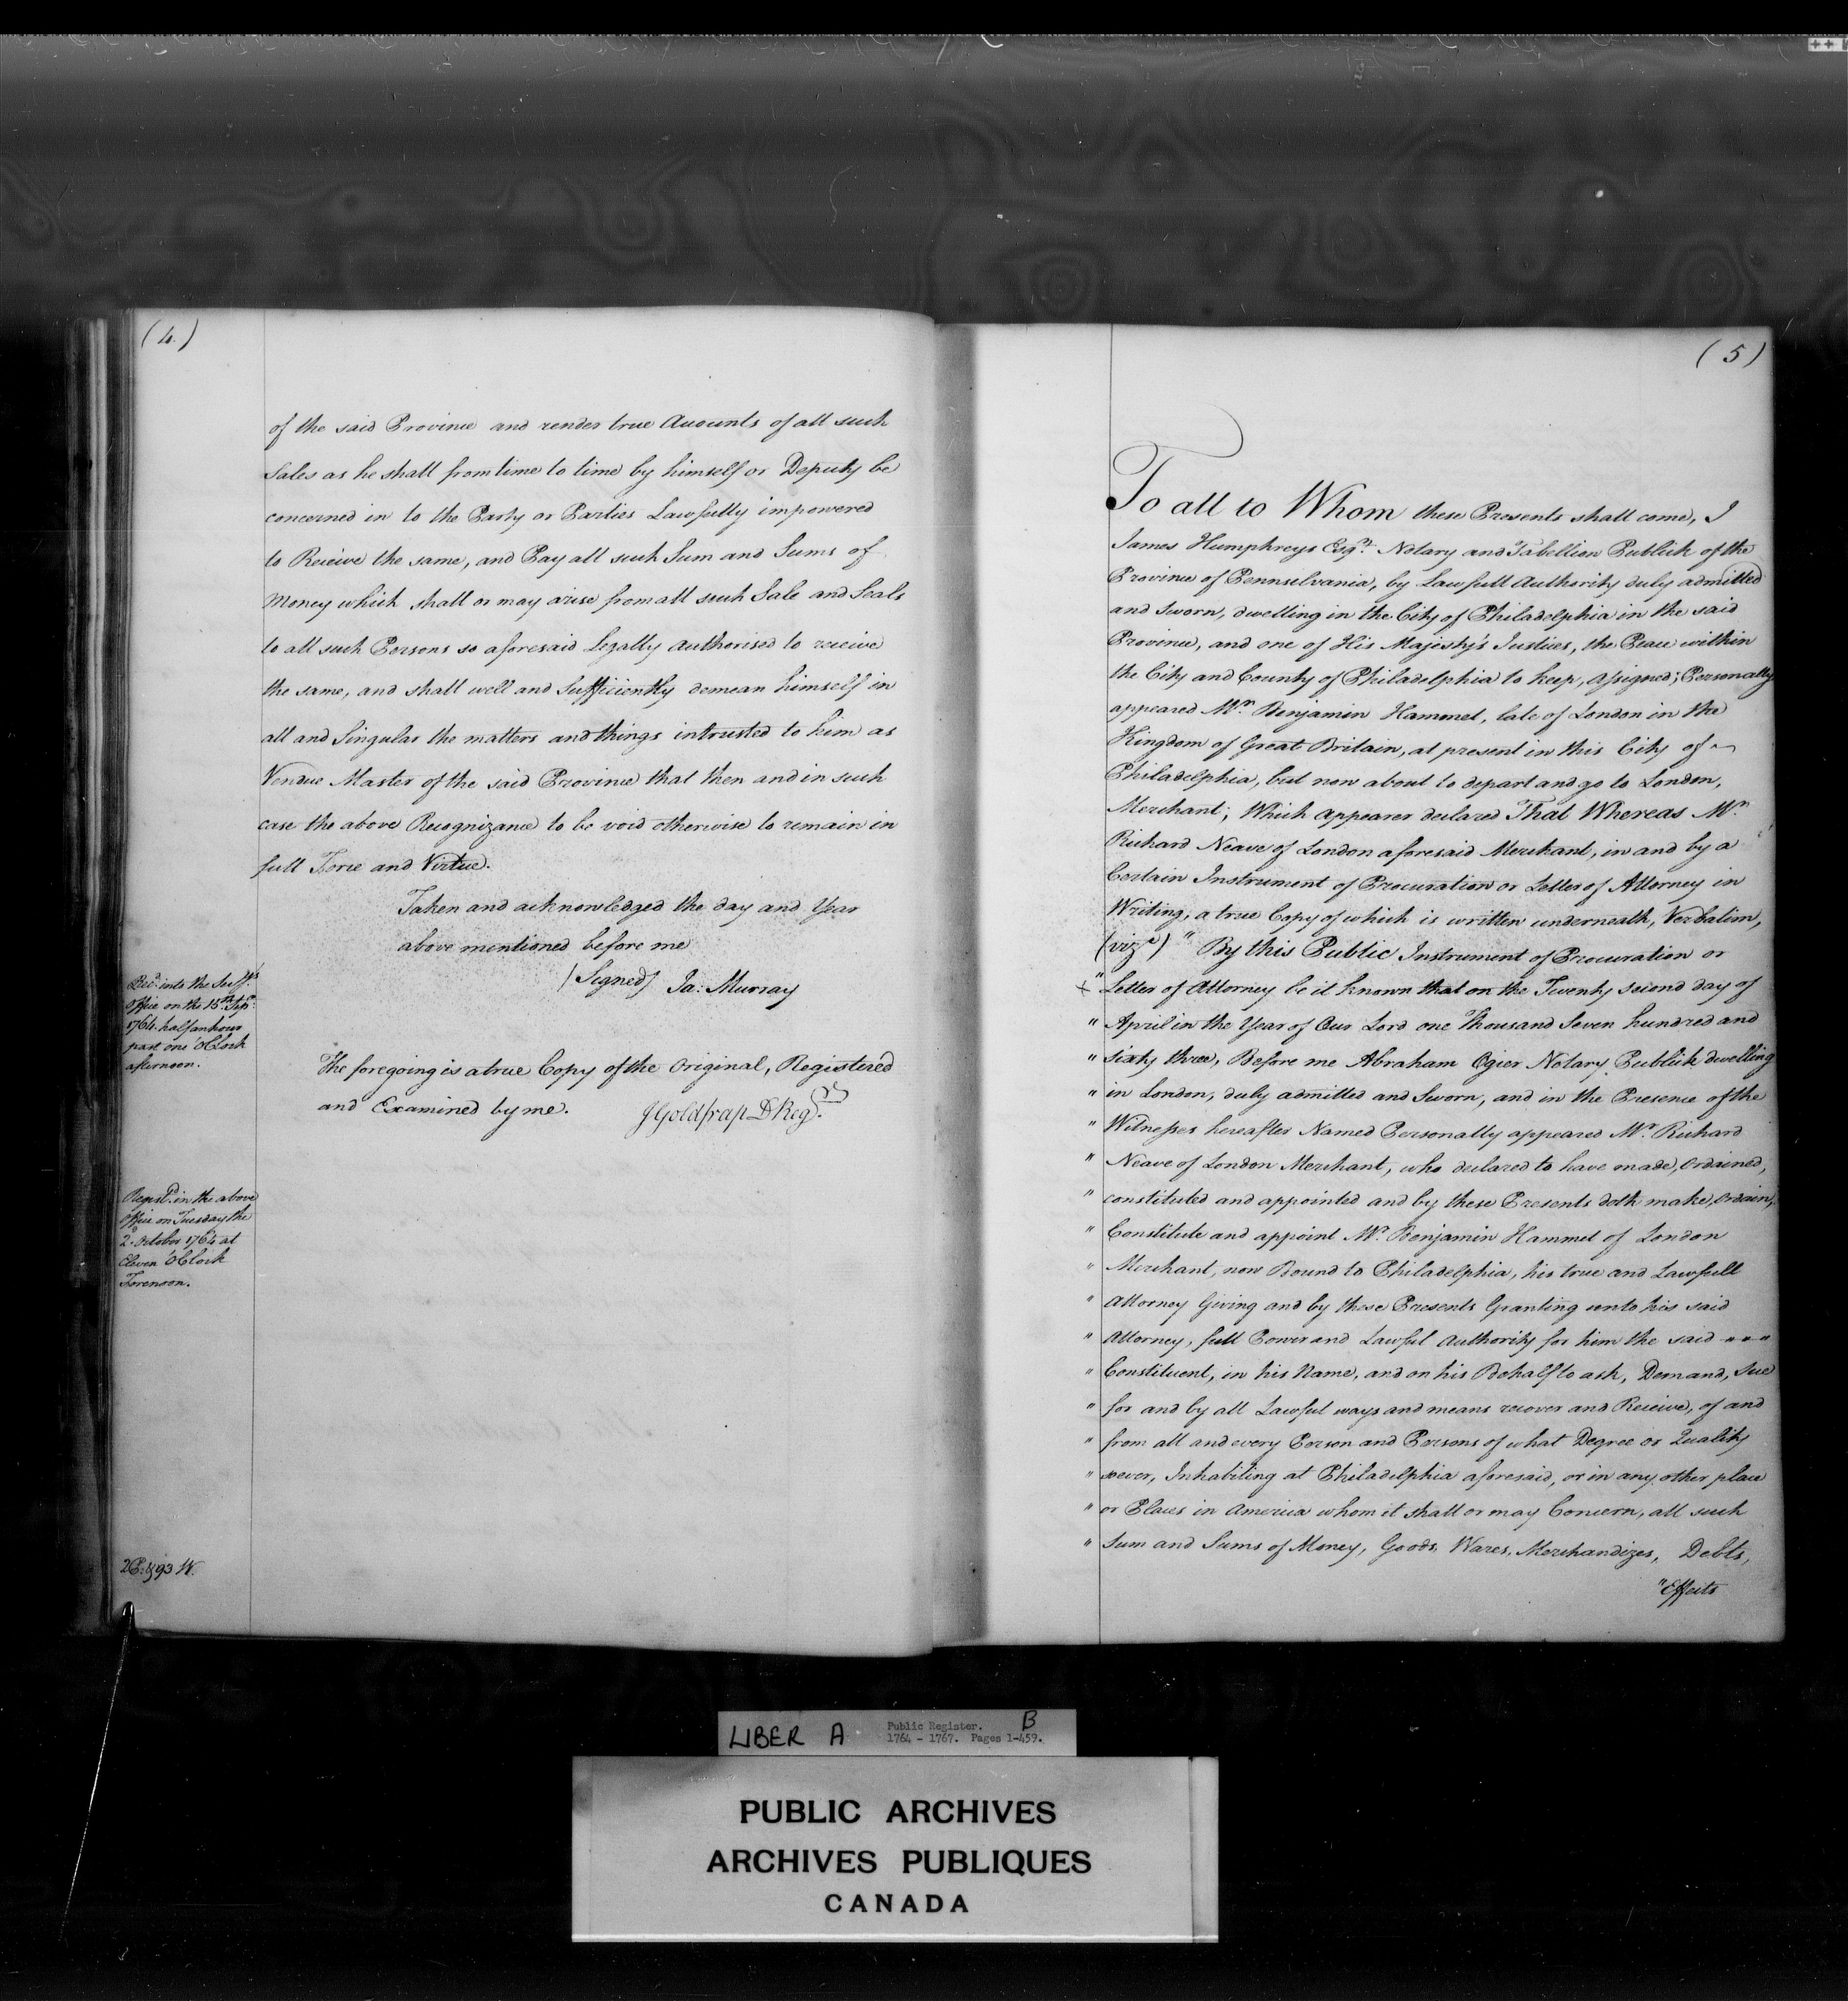 (4.)
of the said Province and render true Accounts of all such
Sales as he shall from time to time by himself or Deputy be
concerned in to the Party or Parties Lawfully impowered
to Receive the same, and Pay all such Sum and Sums of
Money which shall or may arise from all such Sale and Seals
to all such Persons so aforesaid Legally Authorised to receive
the same, and shall well and Sufficiently demean himself in
all and Singular the matters and things intrusted to him as
Vendue Master of the said Province that then and in such
case the above Recognizance to be void otherwise to remain in
full Force and Virtue.
Taken and acknowledged the day and Year
above mentioned before me
(Signed) Ja: Murray
Rec.d into the
Office on the 15.th Sep.r
1764. half an hour
past one O'Clock
afternoon.
The foregoing is a true Copy of the Original, Registered
and Examined by me. J Goldfrap D Reg.r
Regist.d in the above
Office on Tuesday the
2.d October 1764 at
Eleven O'Clock
Forenoon.
2P: & 93 W.
(5)
To all to Whom these Presents shall come, I
James Humphreys Esq.r Notary and Tabellion Publick of the
Province of Pennsilvania, by Lawfull Authority duly admitted
and Sworn, dwelling in the City of Philadelphia in the said
Province, and one of His Majesty's Justices, the Peace within
the City and County of Philadelphia to keep, assigned; Personally
appeared M.r Benjamin Hammet, late of London in the
Kingdom of Great Britain, at present in this City of
Philadelphia, but now about to depart and go to London,
Merchant; Which Appearer declared That Whereas M.r
Richard Neave of London aforesaid Merchant, in and by a
Certain Instrument of Procuration or Letter of Attorney in
Writing, a true Copy of which is written underneath, Verbatim,
(viz.t) " By this Public Instrument of Procuration or
" Letter of Attorney be it known that on the Twenty second day of
" April in the Year of Our Lord one Thousand Seven hundred and
" sixty three, Before me Abraham Ogier Notary Publick dwelling
" in London, duly admitted and Sworn, and in the Presence of the
" Witnesses hereafter Named Personally appeared M.r Richard
" Neave of London Merchant, who declared to have made, Ordained,
" constituted and appointed and by these Presents doth make, Ordain,
" Constitute and appoint M.r Benjamin Hammet of London
" Merchant, now Bound to Philadelphia, his true and Lawfull
" Attorney Giving and by these Presents Granting unto his said
" Attorney, full Power and Lawful Authority for him the said " " "
" Constituent, in his Name, and on his Behalf to ask, Demand, Sue
" for and by all Lawful ways and means recover and Receive, of and
" from all and every Person and Persons of what Degree or Quality
" soever, Inhabiting at Philadelphia aforesaid, or in any other place
" or Places in America whom it shall or may Concern, all such
" Sum and Sums of Money, Goods, Wares, Merchandizes, Debts,
" Effects
LIBER A
Public Register. B
1764 - 1767. Pages 1-459.
PUBLIC ARCHIVES
ARCHIVES PUBLIQUES
CANADA